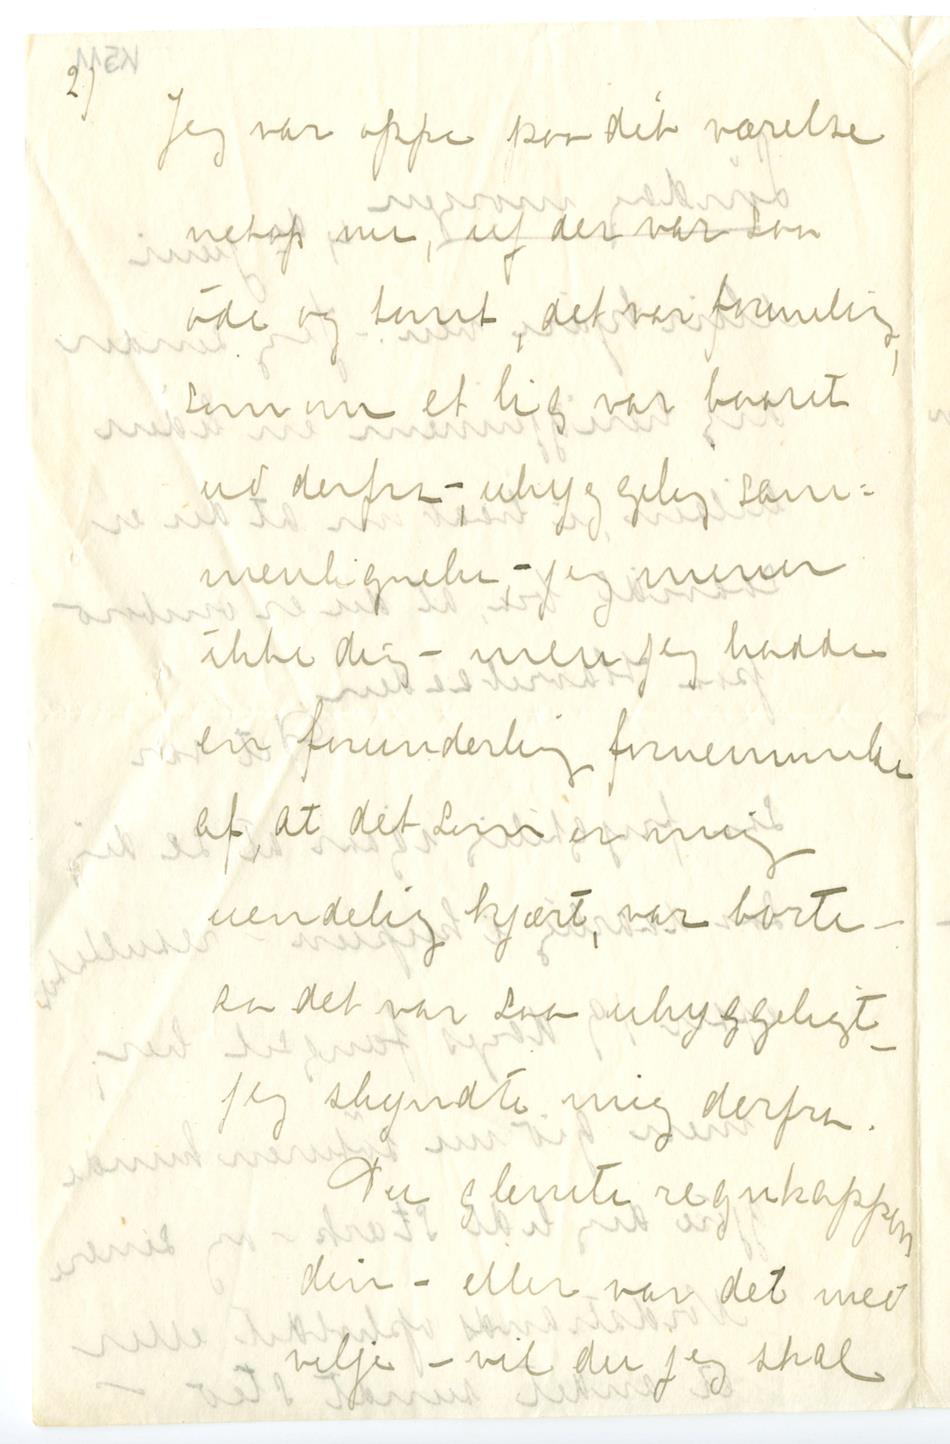 2)
Jeg var oppe paa dit værelse
netop nu, uf der var saa
øde og tomt, det var formelig,
som om et lig var baaret
ud derfra -, uhyggelig sam=
menligning - jeg mener
ikke dig - men jeg hadde
en forunderlig fornemmelse
af, at det som er mig
uendelig kjært, var borte -
aa det var saa uhyggeligt -
jeg skyndte mig derfra.
Du glemte regnkappen
din - eller var det med
vilje - vil du jeg skal